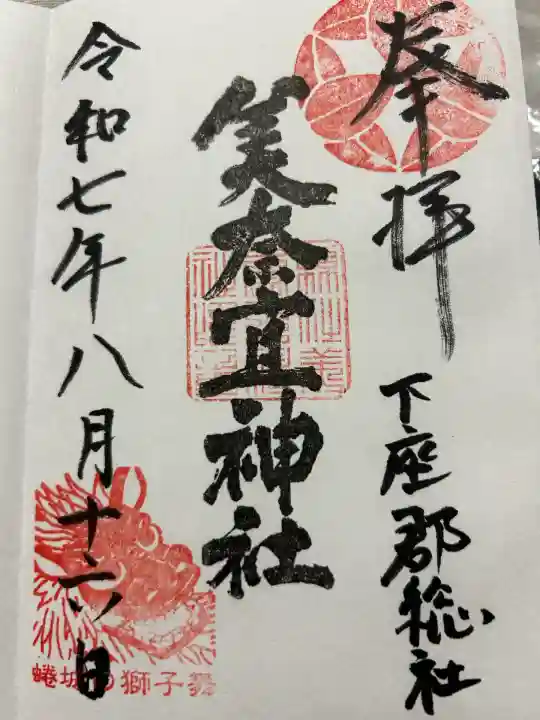 奉拝
下座郡総社
美奈宜神社
令和七年八月十六日
蜷城の獅子舞